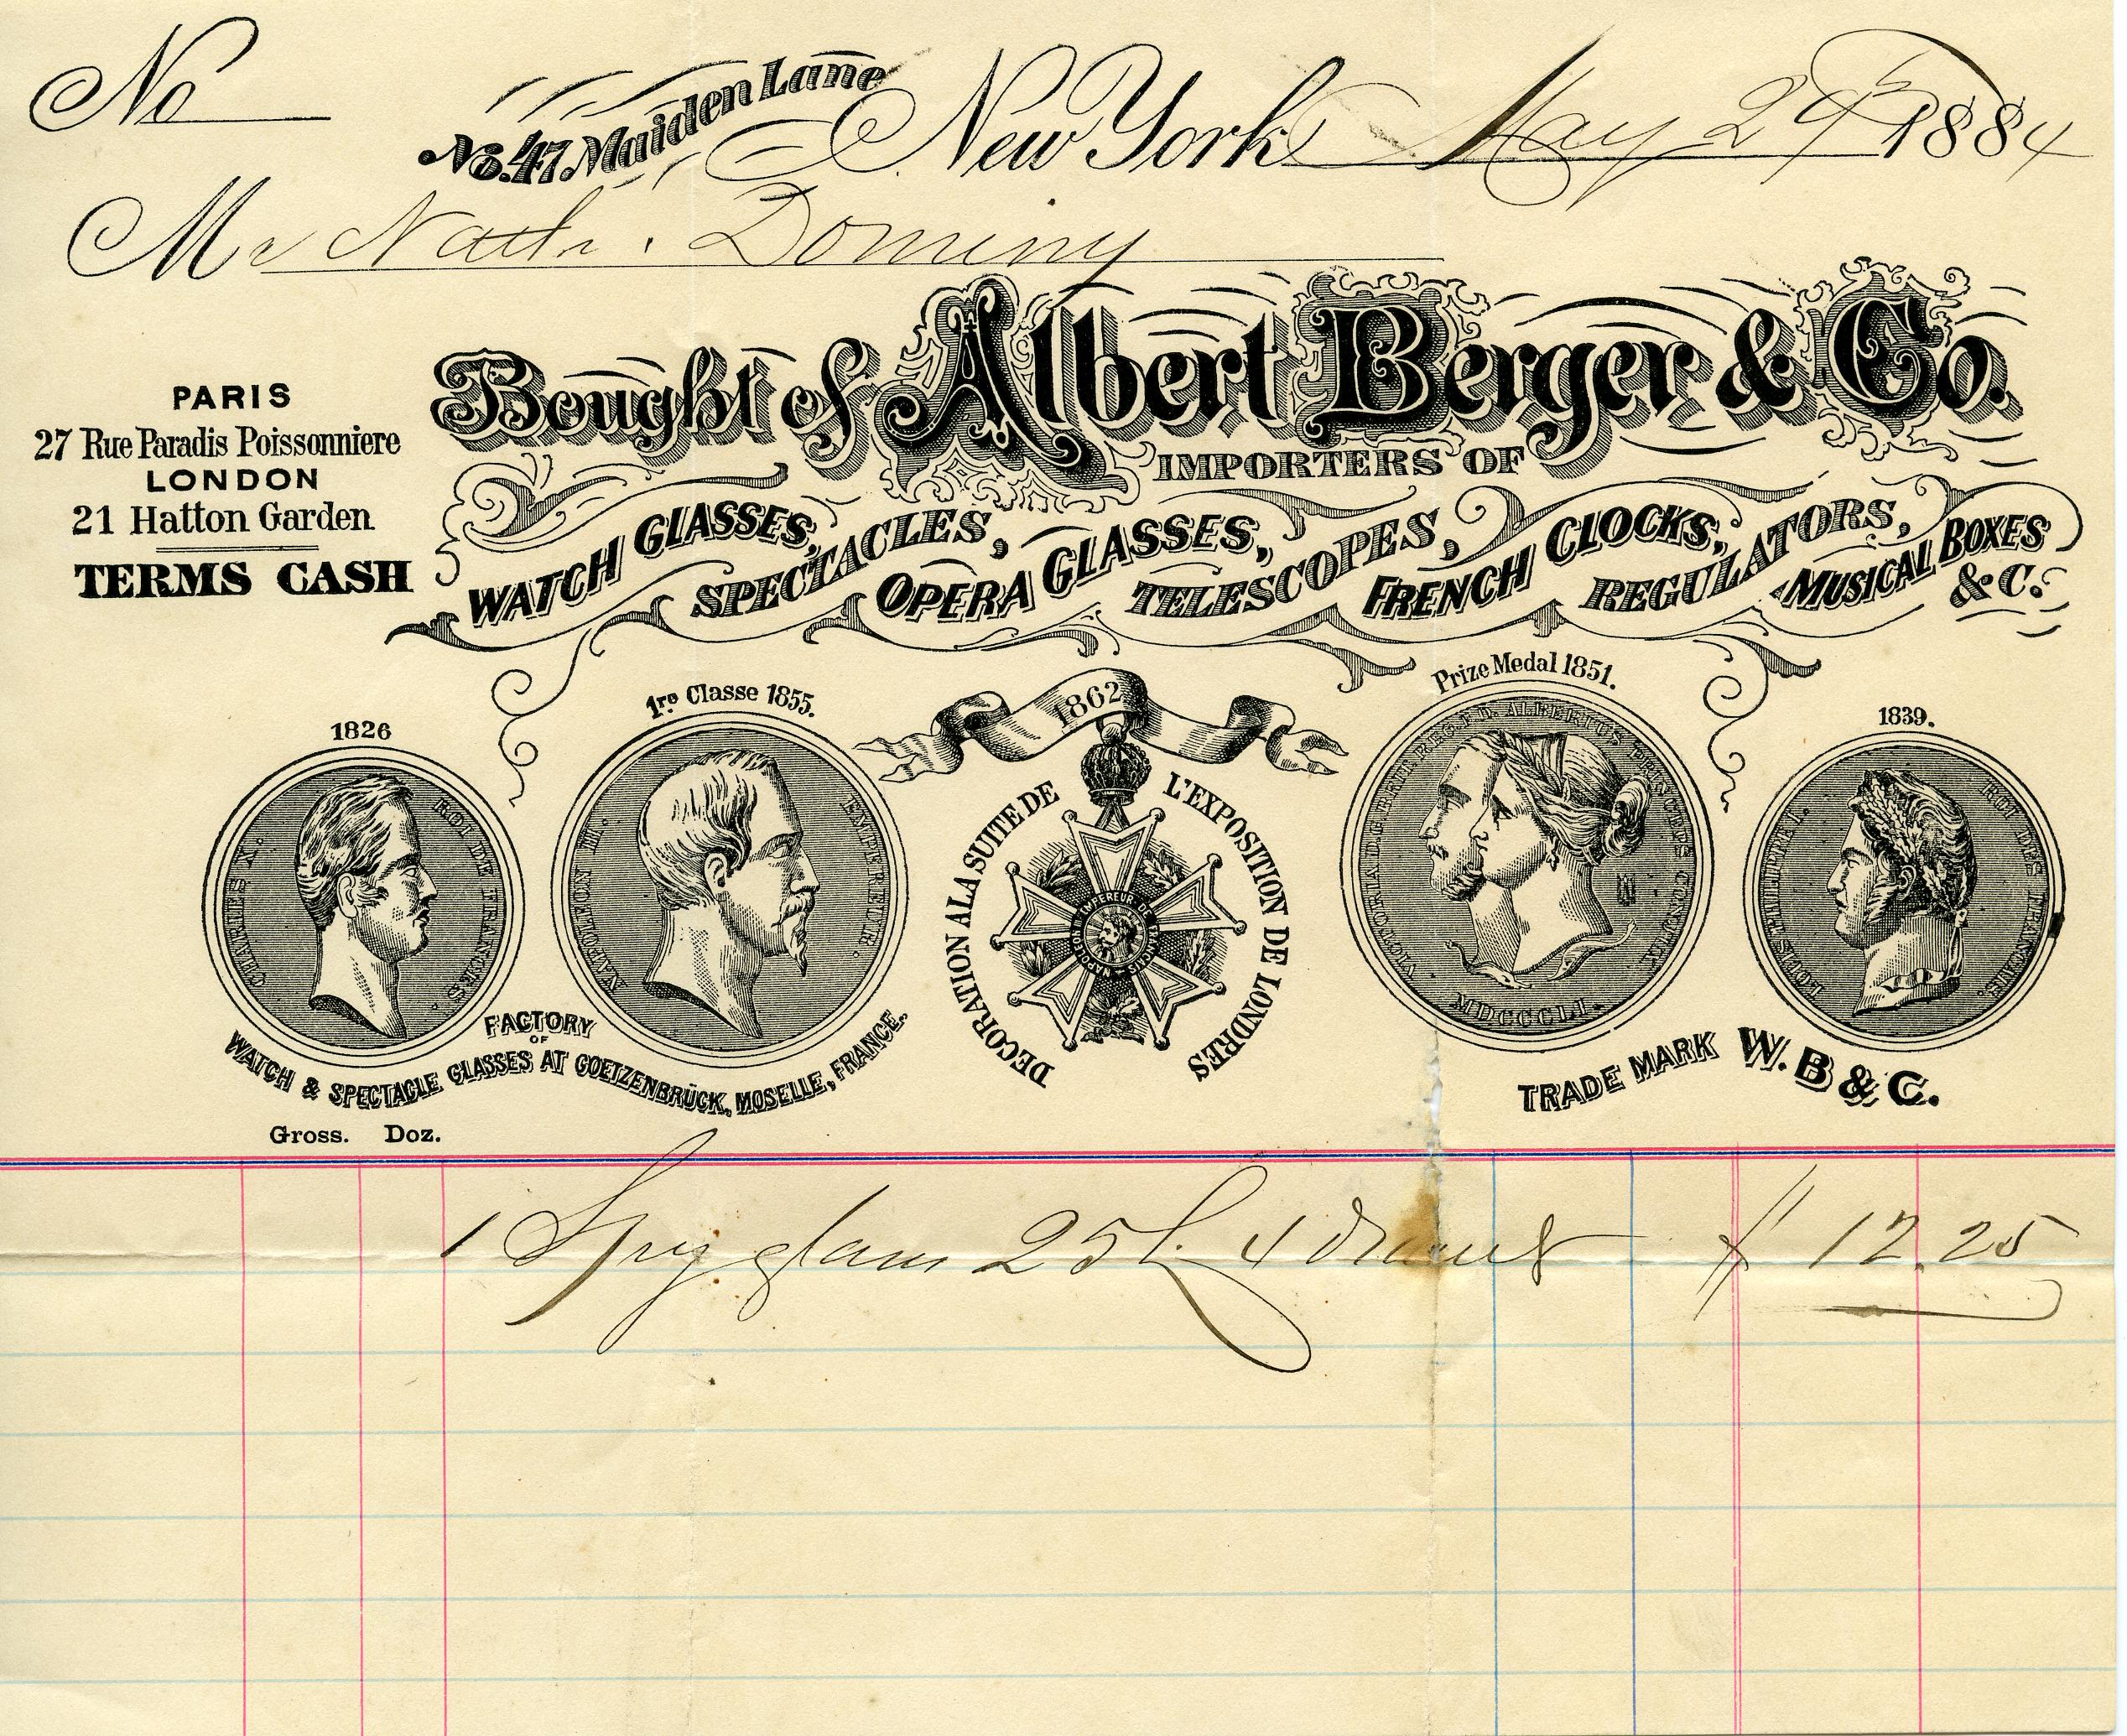 No
No. 47. Maiden Lane New York May 29th 1884
Mr Nath. Dominy
PARIS
27 Rue Paradis Poissonniere
LONDON
21 Hatton Garden
TERMS CASH
Bought of Albert Berger & Co.
IMPORTERS OF
WATCH GLASSES, SPECTACLES, OPERA GLASSES, TELESCOPES, FRENCH CLOCKS, REGULATORS, MUSICAL BOXES &C.
1826
1re Classe 1855.
1862
Prize Medal 1851.
1839.
CHARLES X. ROI DE FRANCE
NAPOLEON III. EMPEREUR.
DECORATION A LA SUITE DE L'EXPOSITION DE LONDRES
NAPOLEON EMPEREUR DES FRANCAIS
ALBERTUS PRINCEPS CONJUX
MDCCCLI.
LOUIS PHILIPPE I. ROI DES FRANCAIS.
FACTORY
OF
WATCH & SPECTACLE GLASSES AT GOETZENBRÜCK, MOSELLE, FRANCE.
TRADE MARK W. B & C.
Gross. Doz.
1 Spy glass 25 L. 4 draws $ 12.25